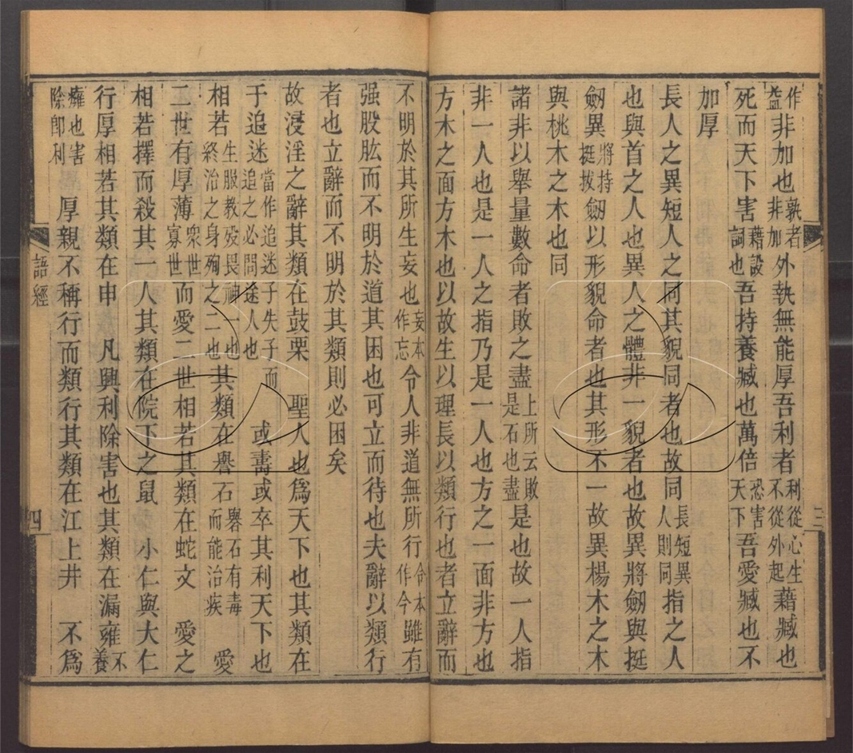 作益非加也孰者非加外執無能厚吾利者利從心生不從外起藉臧也
死而天下害藉設詞也吾持養臧也萬倍恐害天下吾愛臧也不
加厚
長人之異短人之同其貌同者也故同長短異人則同指之人
也與首之人也異人之體非一貌者也故異將劒與挺
劒異將持挺拔劒以形貌命者也其形不一故異楊木之木
與桃木之木也同
諸非以舉量數命者敗之盡上所云敗是石也盡是也故一人指
非一人也是一人之指乃是一人也方之一面非方也
方木之面方木也以故生以理長以類行也者立辭而
不明於其所生妄也妄本作忘今人非道無所行令本作今雖有
强股肱而不明於道其困也可立而待也夫辭以類行
者也立辭而不明於其類則必困矣
故浸淫之辭其類在鼓栗 聖人也爲天下也其類在
于追迷當作追迷子失子而追之必問途人也 或壽或卒其利天下也
相若生服教殁畏神一也終治之身殉之二也其類在譽石礜石有毒而能治疾 愛
二世有厚薄衆世寡世而愛二世相若其類在蛇文 愛之
相若擇而殺其一人其類在院下之鼠 小仁與大仁
行厚相若其類在申 凡興利除害也其類在漏雍不養
癰也害除卽利 厚親不稱行而類行其類在江上井 不爲
語經
三
四